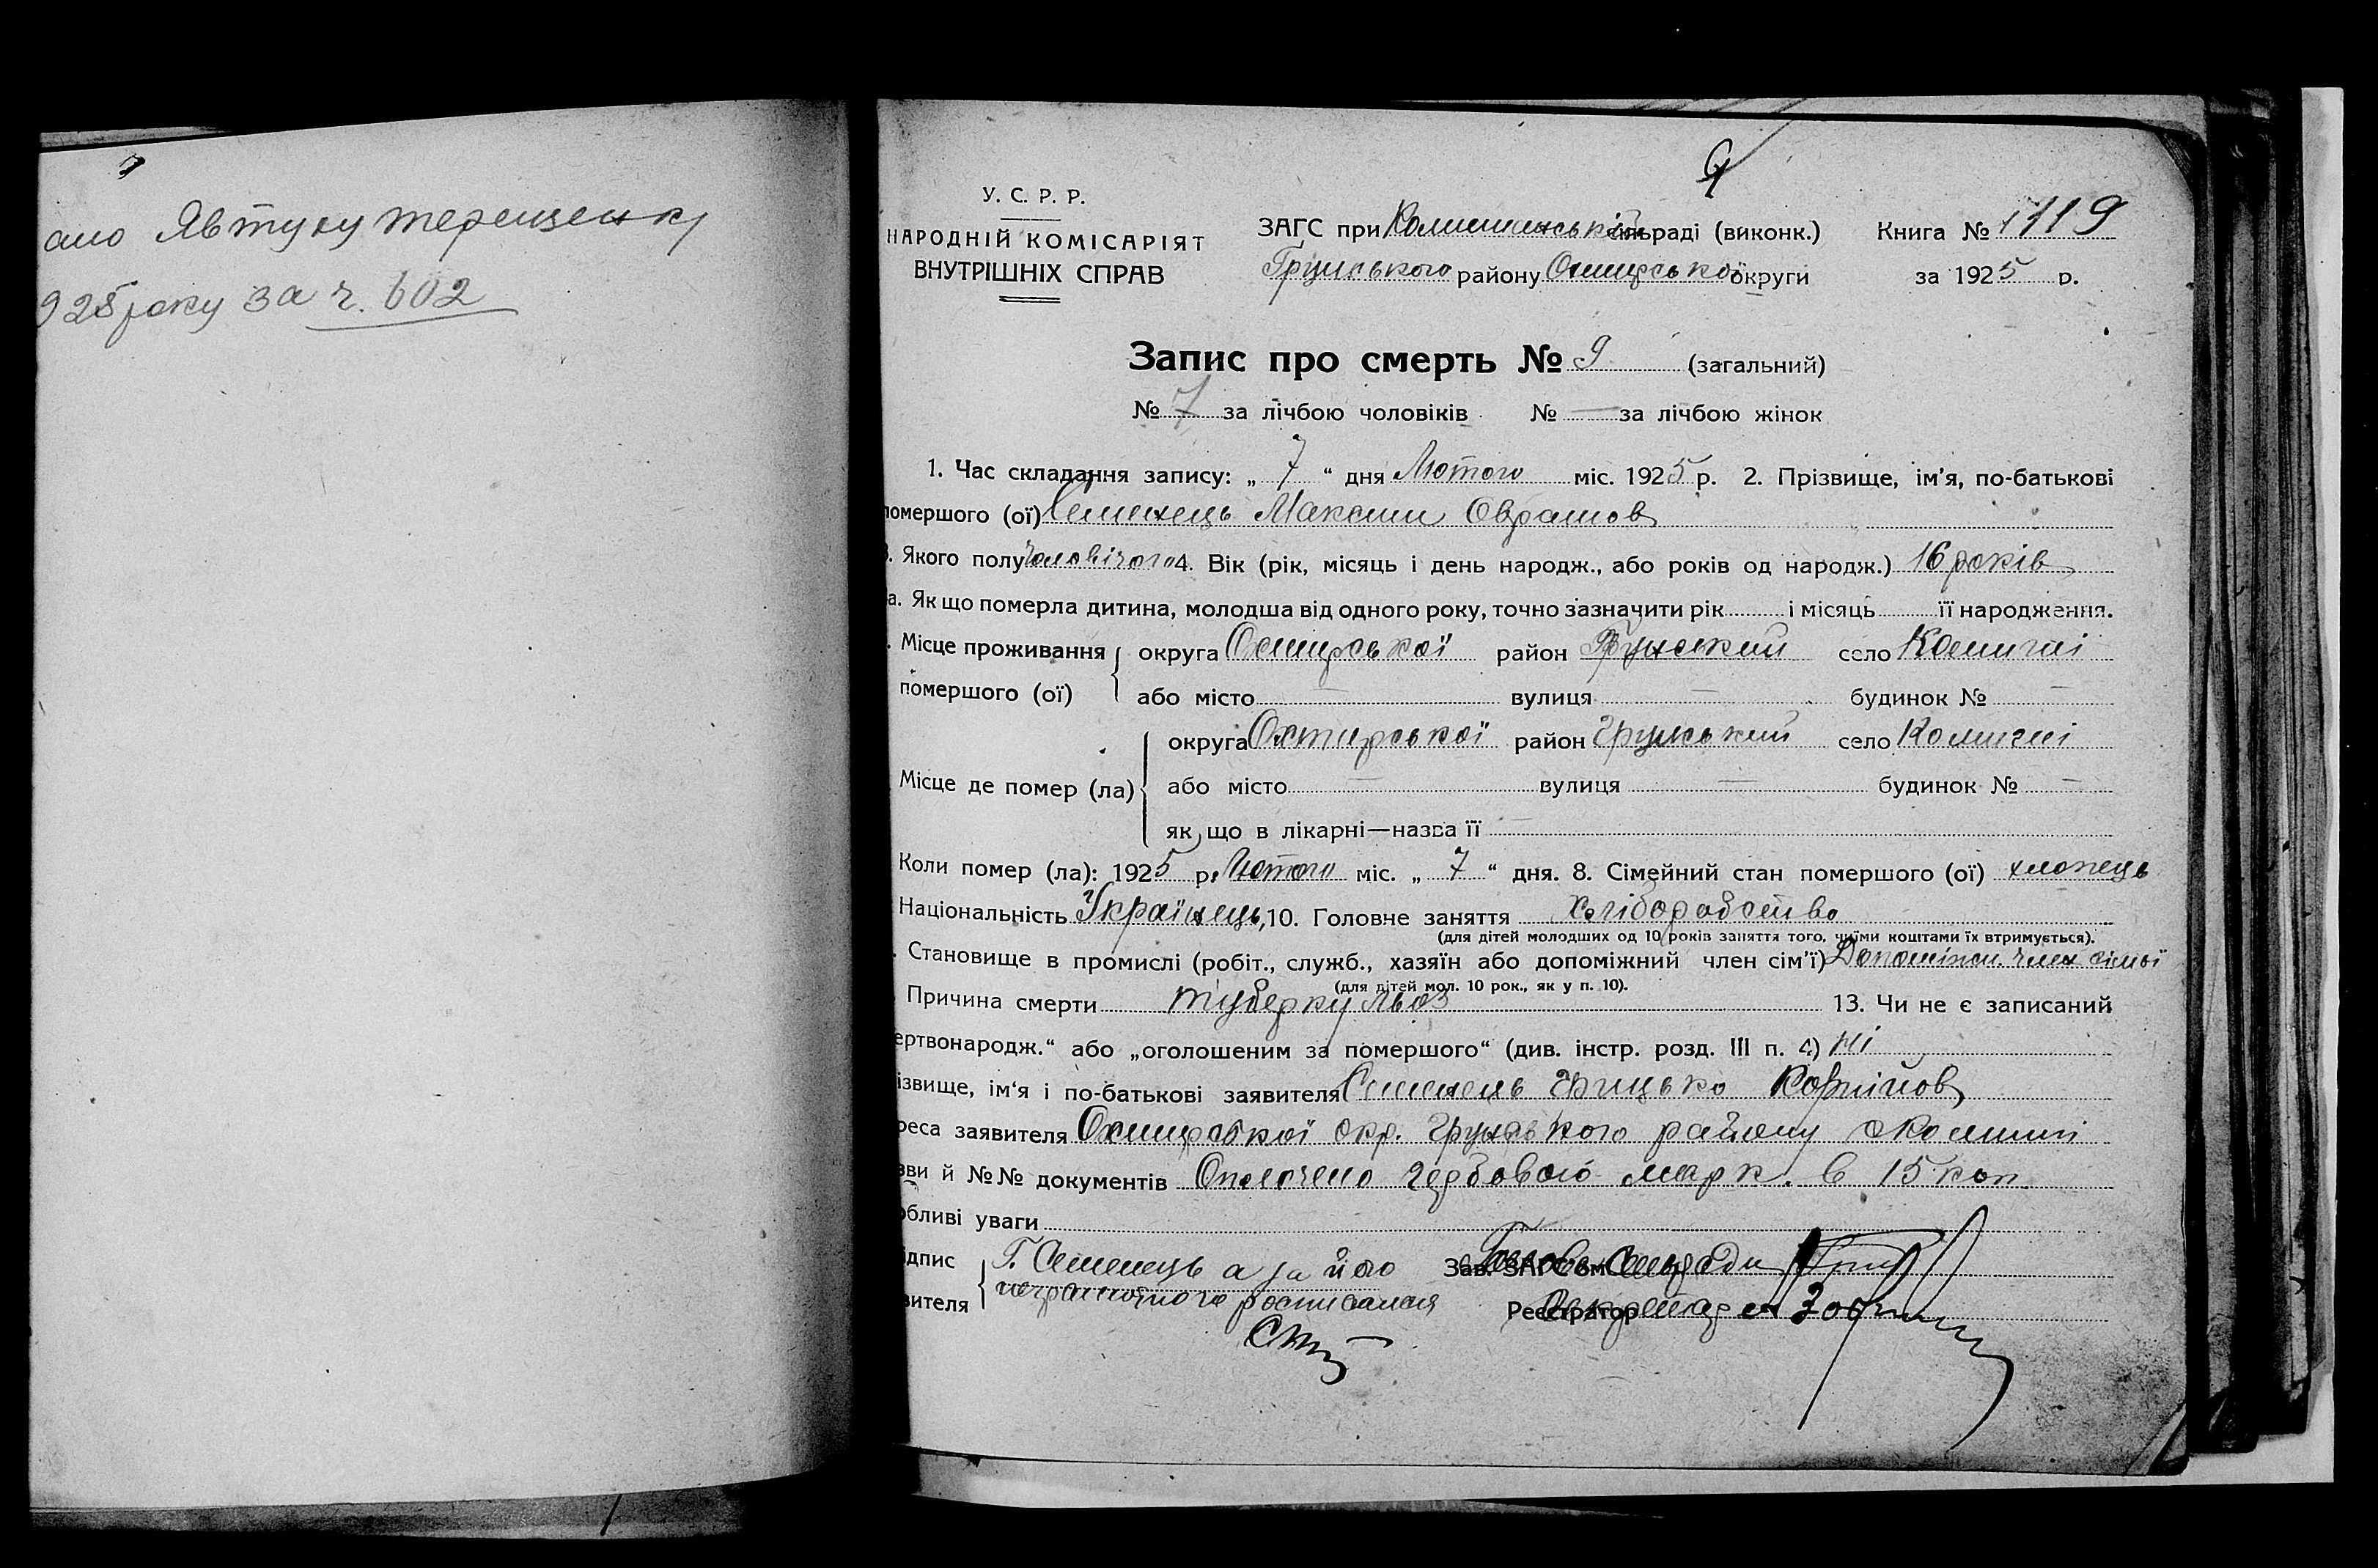 ано Явтуху Терещенку
925 року за ч. 602
9
У. С. Р. Р.
НАРОДНІЙ КОМІСАРІЯТ
ВНУТРІШНІХ СПРАВ
ЗАГС при сільраді (виконк.)
Грунського району Охтирської округи
Книга № 1119
за 1925 р.
Запис про смерть № 9 (загальний)
№ 7 за лічбою чоловіків № — за лічбою жінок
1. Час складання запису: „ 7 “ дня Лютого міс. 1925 р. 2. Прізвище, ім'я, по-батькові
помершого (ої) Семенець Максим Оврамов
3. Якого полу Чоловічого 4. Вік (рік, місяць і день народж., або років од народж.) 16 років
а. Як що померла дитина, молодша від одного року, точно зазначити рік і місяць її народження.
Місце проживання помершого (ої) округа Охтирської район Грунський село Комиші
або місто — вулиця — будинок № —
Місце де помер (ла) округа Охтирської район Грунський село Комиші
або місто — вулиця — будинок № —
як що в лікарні—назва її —
Коли помер (ла): 1925 р. Лютого міс. „ 7 “ дня. 8. Сімейний стан помершого (ої) хлопець
Національність Українець, 10. Головне заняття Хліборобство
(для дітей молодших од 10 років заняття того, чиїми коштами їх втримується).
Становище в промислі (робіт., служб., хазяїн або допоміжний член сім'ї) Допоміжн. член сімьї
(для дітей мол. 10 рок., як у п. 10).
Причина смерти туберкульоз 13. Чи не є записаний
ертвонародж.“ або „оголошеним за помершого“ (див. інстр. розд. III п. 4) ні
ізвище, ім‘я і по-батькові заявителя Семенець Грицько Корнійов
реса заявителя Охтирської окр. Грунського району с Комиші
зви й №№ документів Оплочено гербовою марк. в 15 коп.
обливі уваги
ідпис Г. Семенець а за його
вителя неграмотного росписался
Зав. ЗАГСом Голова Сельради
Реєстратор Секретар